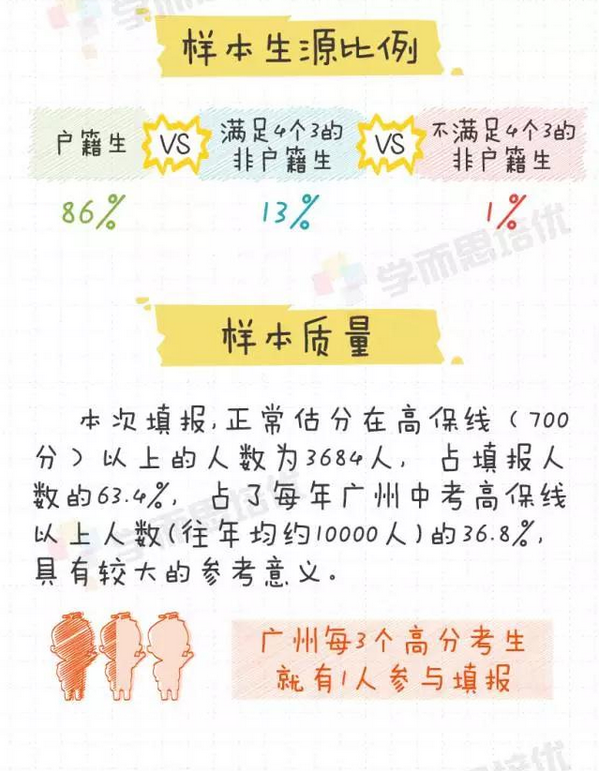 学而思培优
样本生源比例
户籍生 VS 满足4个3的非户籍生 VS 不满足4个3的非户籍生
86% 13% 1%
学而思培优
样本质量
本次填报,正常估分在高保线（700
分）以上的人数为3684人，占填报人
数的63.4%，占了每年广州中考高保线
以上人数(往年均约10000人)的36.8%,
具有较大的参考意义。
学而思培优
广州每3个高分考生
就有1人参与填报